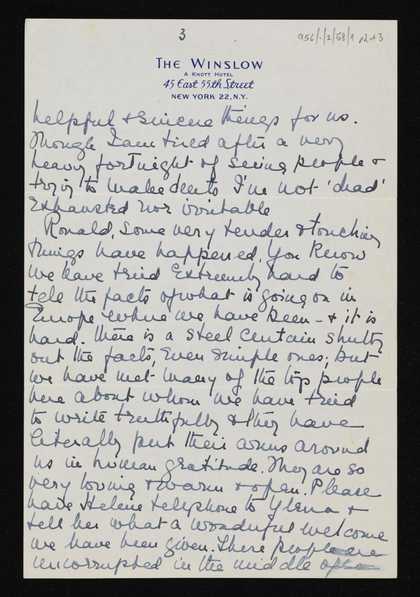 3
THE WINSLOW
A KNOTT HOTEL
45 East 55th Street
NEW YORK 22, N.Y.
helpful & sincere things for us.
Though I am tired after a very
heavy fortnight of seeing people &
trying to make dents I'm not 'dead'
exhausted nor irritable
Ronald, some very tender & touching
things have happened. You know
we have tried extremely hard to
tell the facts of what is going on in
Europe where we have been - & it is
hard. There is a steel curtain shutting
out the facts, even simple ones; but
we have met many of the top people
here about whom we have tried
to write truthfully & they have
literally put their arms around
us in human gratitude. They are so
very loving & warm & open. Please
have Helene telephone to &
tell her what a wonderful welcome
we have been given. These people are
uncorrupted in the middle of